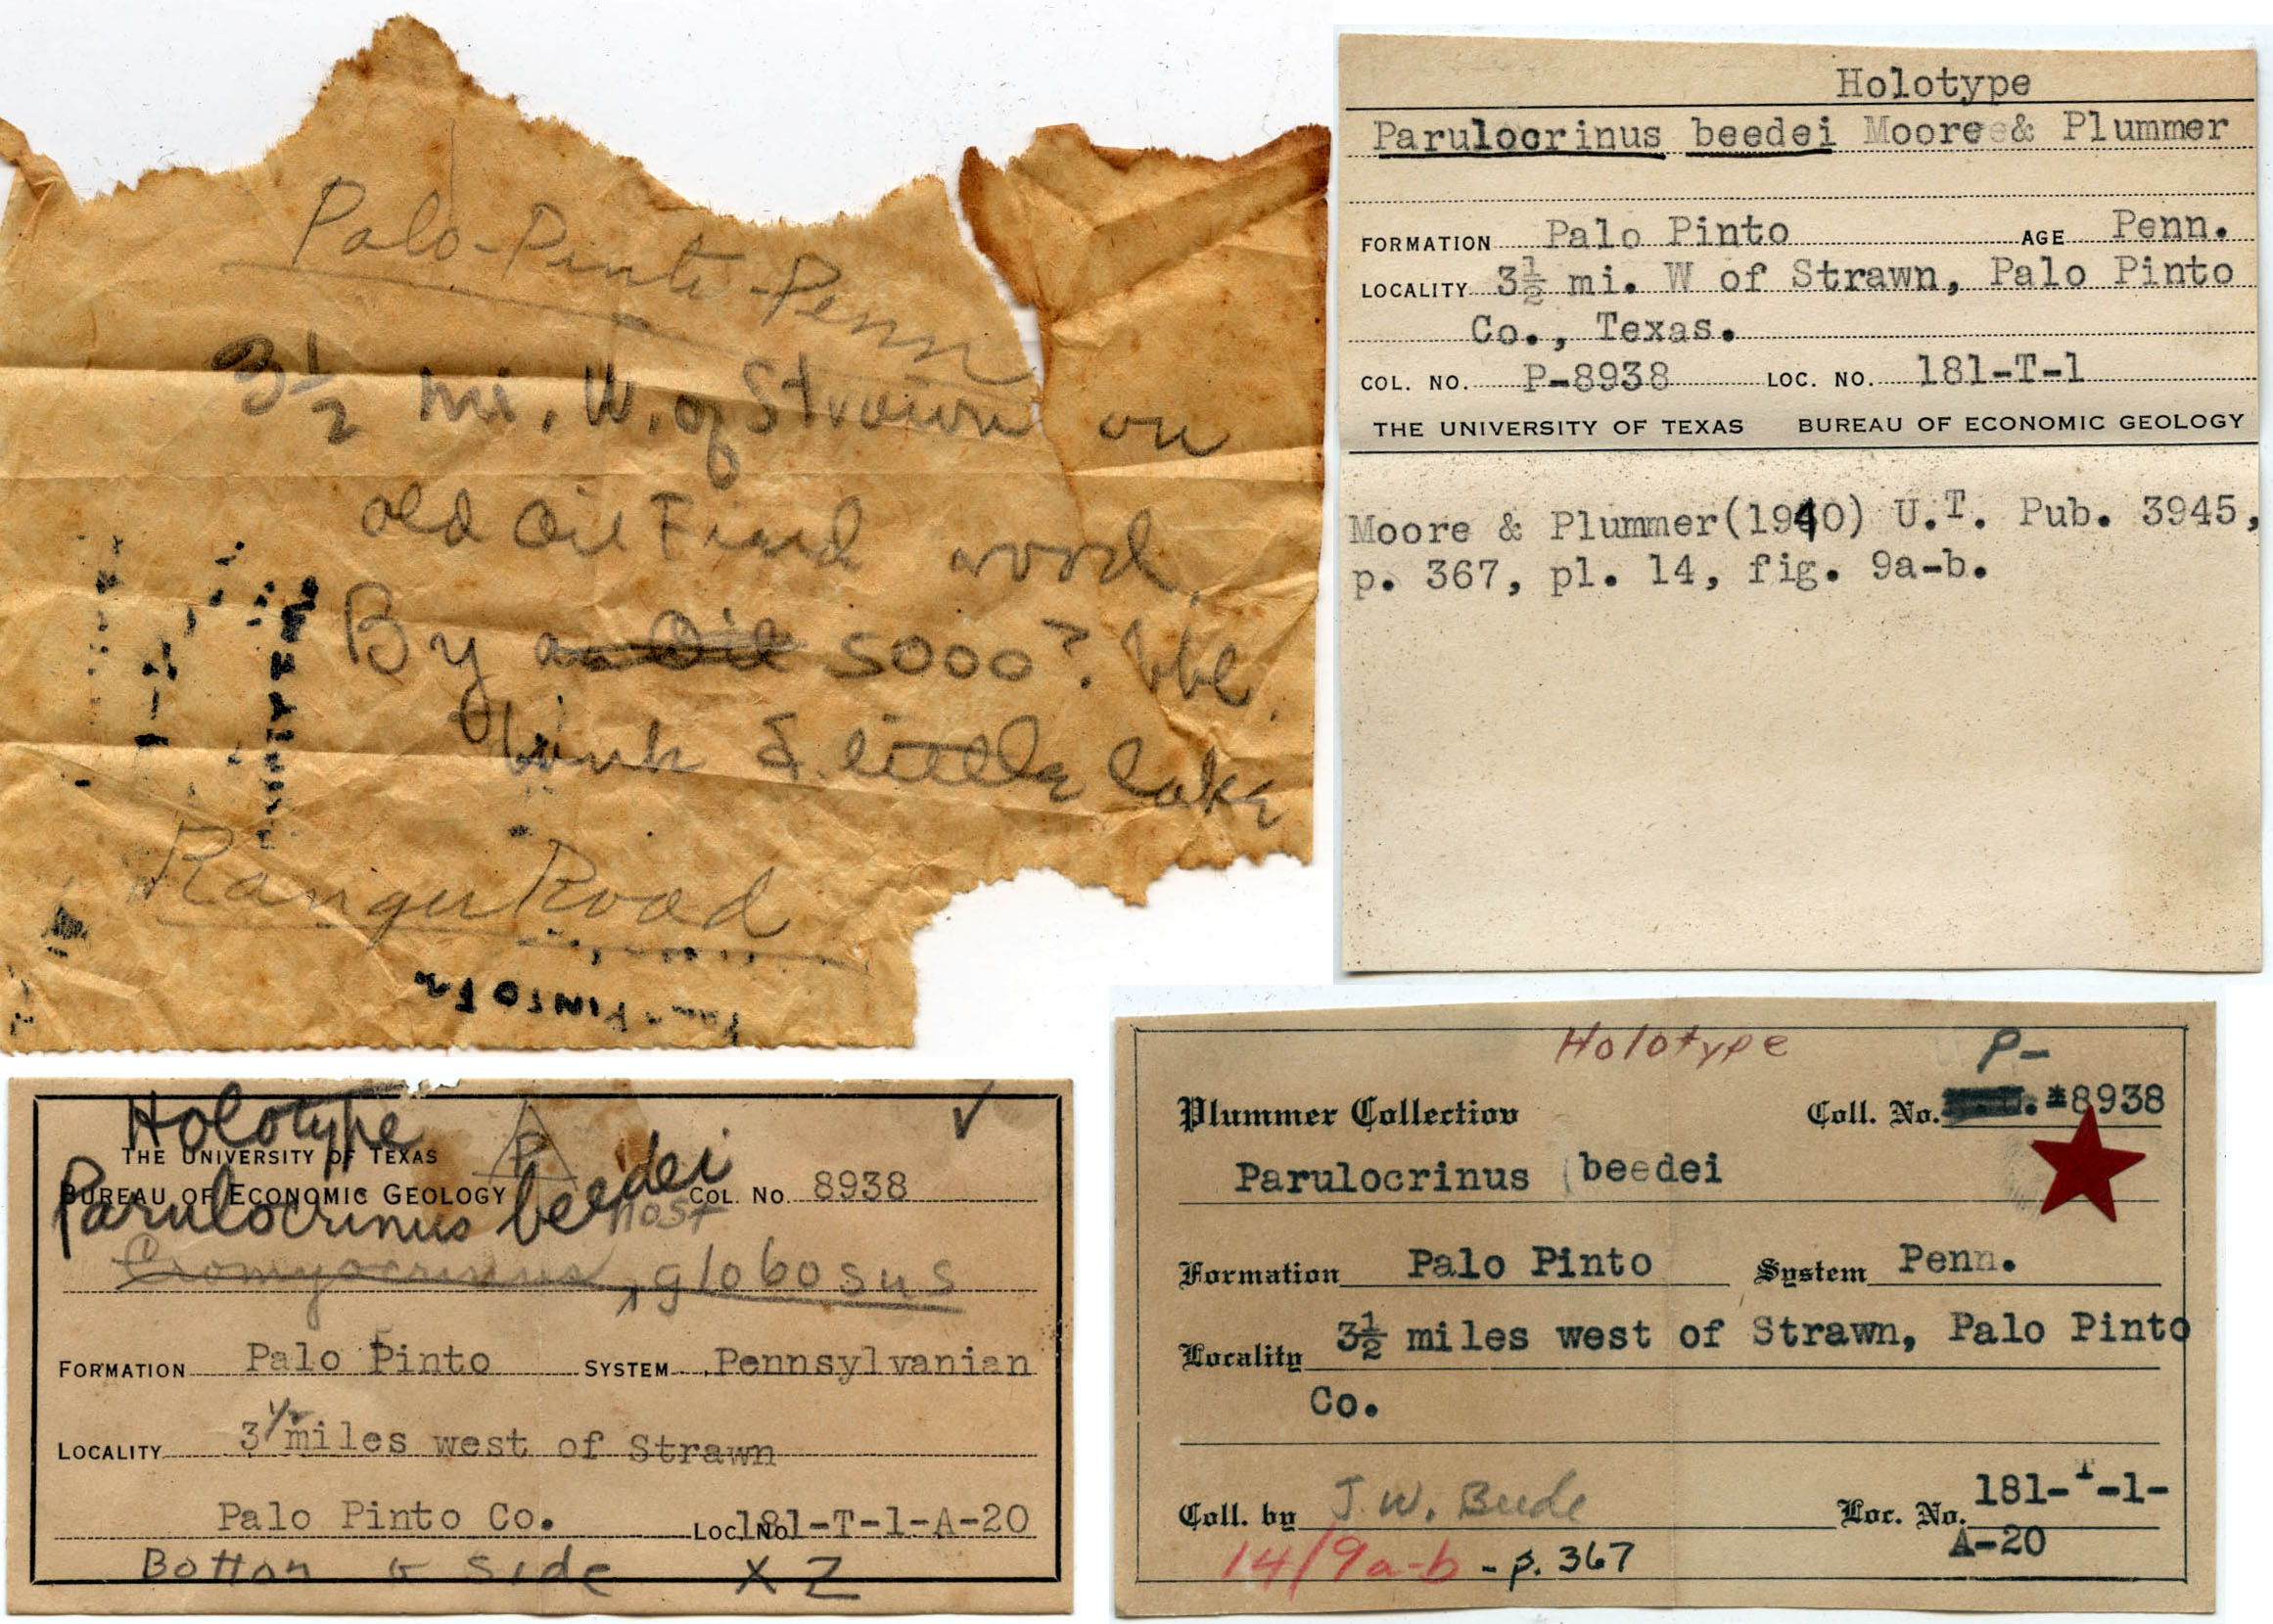 Palo-Pinto-Penn
3½ mi. W. of Strawn on
old Oil Field road
By an Oil 5000? bbl.
tank & little lake
Ranger Road
PINTO
Holotype
Parulocrinus beedei Moore & Plummer
FORMATION Palo Pinto AGE Penn.
LOCALITY 3½ mi. W of Strawn, Palo Pinto
Co., Texas.
COL. NO. P-8938 LOC. NO. 181-T-1
THE UNIVERSITY OF TEXAS BUREAU OF ECONOMIC GEOLOGY
Moore & Plummer(1940) U.T. Pub. 3945,
p. 367, pl. 14, fig. 9a-b.
Holotype
P
THE UNIVERSITY OF TEXAS
BUREAU OF ECONOMIC GEOLOGY COL. NO. 8938
Parulocrinus beedei
Cromyocrinus globosus
FORMATION Palo Pinto SYSTEM Pennsylvanian
LOCALITY 3 1/2 miles west of Strawn
Palo Pinto Co. LOC. NO. 181-T-1-A-20
Bottom & side X 2
Holotype P-
Plummer Collection Coll. No. *8938
Parulocrinus beedei
Formation Palo Pinto System Penn.
Locality 3½ miles west of Strawn, Palo Pinto
Co.
Coll. by J. W. Beede Loc. No. 181-T-1-
A-20
14/9a-b - p. 367